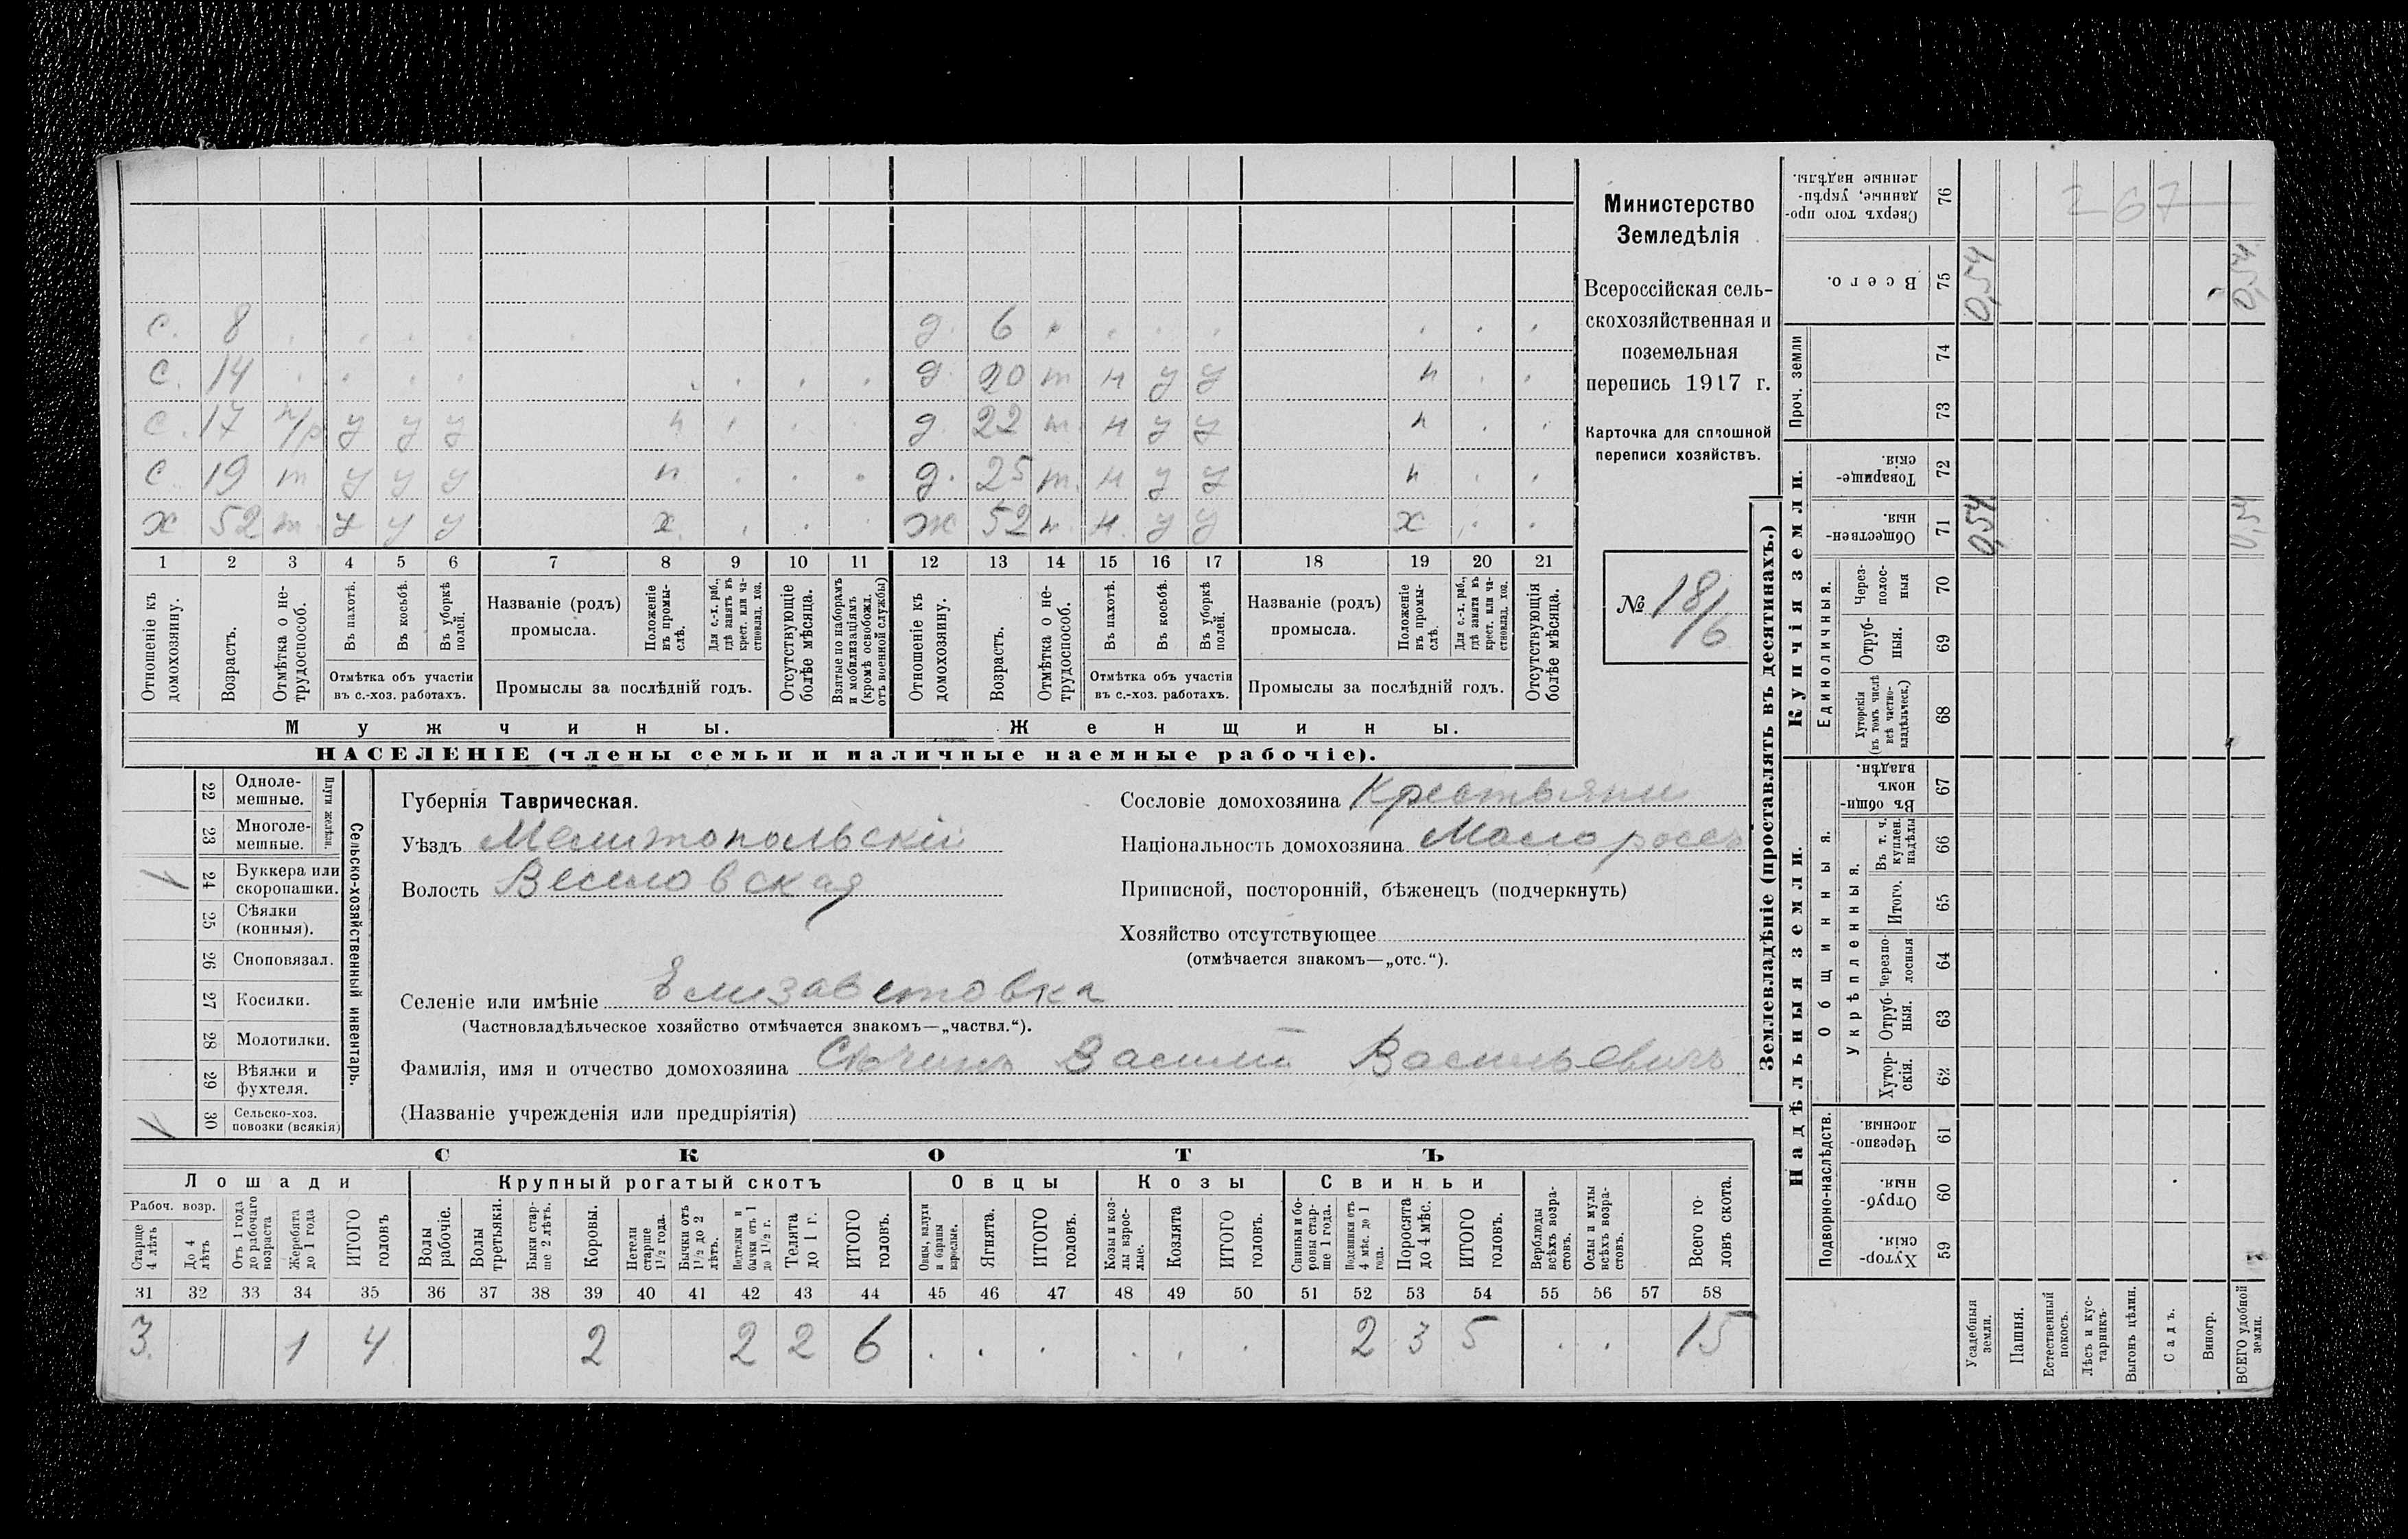 с. 8 . . . . . д. 6 . . . . . . .
с. 14 . . . . . . . . д. 20 т н у у н . .
с. 17 п/р у у у н . . . д. 22 т. н у у н . .
с 19 т у у у н . . . д. 25 т. н у у н . .
х 52 т у у у х. . . . ж 52 т. н. у у х . .
1 2 3 4 5 6 7 8 9 10 11 12 13 14 15 16 17 18 19 20 21
Отношеніе къ домохозяину.
Возрастъ.
Отмѣтка о не-трудоспособ.
Въ пахотѣ.
Въ косьбѣ.
Въ уборкѣ полей.
Отмѣтка объ участіи
въ с.-хоз. работахъ.
Названіе (родъ)
промысла.
Положеніе въ промы-слѣ.
Для с.-х. раб., гдѣ занятъ въ крест. или ча-стновлад. хоз.
Промыслы за послѣдній годъ.
Отсутствующіе болѣе мѣсяца.
Взятые по наборамъ и мобилизаціямъ (кромѣ освобожд. отъ военной службы)
Отношеніе къ домохозяину.
Возрастъ.
Отмѣтка о не-трудоспособ.
Въ пахотѣ.
Въ косьбѣ.
Въ уборкѣ полей.
Отмѣтка объ участіи
въ с.-хоз. работахъ.
Названіе (родъ)
промысла.
Положеніе въ промы-слѣ.
Для с.-х. раб., гдѣ занята въ крест. или ча-стновлад. хоз.
Промыслы за послѣдній годъ.
Отсутствующія болѣе мѣсяца.
Мужчины.
Женщины.
НАСЕЛЕНІЕ (члены семьи и наличные наемные рабочіе).
Министерство
Земледѣлія
Всероссійская сель-
скохозяйственная и
поземельная
перепись 1917 г.
Карточка для сплошной
переписи хозяйствъ.
№ 18/6
22 Одноле-мешные.
23 Многоле-мешные.
Плуги желѣзн.
24 Буккера или скоропашки.
25 Сѣялки (конныя).
26 Сноповязал.
27 Косилки.
28 Молотилки.
29 Вѣялки и фухтеля.
30 Сельско-хоз. повозки (всякія)
Сельско-хозяйственный инвентарь.
Губернія Таврическая.
Уѣздъ Мелитопольскій
Волость Веселовская
Сословіе домохозяина Крестьянин
Національность домохозяина Малороссъ
Приписной, посторонній, бѣженецъ (подчеркнуть)
Хозяйство отсутствующее
(отмѣчается знакомъ—„отс.“).
Селеніе или имѣніе Елизаветовка
(Частновладѣльческое хозяйство отмѣчается знакомъ—„частвл.“).
Фамилія, имя и отчество домохозяина Василій Васильевичъ
(Названіе учрежденія или предпріятія)
СКОТЪ
Лошади
Крупный рогатый скотъ
Овцы
Козы
Свиньи
Рабоч. возр.
Старше 4 лѣтъ
До 4 лѣтъ
Отъ 1 года до рабочаго возраста
Жеребята до 1 года
ИТОГО головъ
Волы рабочіе.
Волы третьяки.
Быки стар-ше 2 лѣтъ.
Коровы.
Нетели старше 1½ года.
Бычки отъ 1½ до 2 лѣтъ.
Подтелки и бычки отъ 1 до 1½ г.
Телята до 1 г.
ИТОГО головъ.
Овцы, валухи и бараны взрослые.
Ягнята.
ИТОГО головъ.
Козы и коз-лы взрос-лые.
Козлята
ИТОГО головъ.
Свиньи и бо-ровы стар-ше 1 года.
Подсвинки отъ 4 мѣс. до 1 года.
Поросята до 4 мѣс.
ИТОГО головъ.
Верблюды всѣхъ возра-стовъ.
Ослы и мулы всѣхъ возра-стовъ.
Всего го-ловъ скота.
31 32 33 34 35 36 37 38 39 40 41 42 43 44 45 46 47 48 49 50 51 52 53 54 55 56 57 58
3. 1 4 2 2 2 6 . . . . . . 2 3 5 . . 15
Землевладѣніе (проставлять въ десятинахъ.)
Купчія земли.
Надѣльныя земли.
Сверхъ того про-данные, укрѣп-ленные надѣлы. 76
Всего. 75 0,54 0,54
Проч. земли 74 73
Товарище-скія. 72
Обществен-ныя. 71 0,54 0,54
Единоличныя.
Через-полос-ныя 70
Отруб-ныя. 69
Хуторскія (въ томъ числѣ всѣ частно-владѣльческ.) 68
Общинныя.
Въ общи-номъ владѣн. 67
Укрѣпленныя.
Въ т. ч. куплен. надѣлы 66
Итого. 65
Черезпо-лосныя 64
Отруб-ныя. 63
Хутор-скія. 62
Подворно-наслѣдств.
Черезпо-лосныя. 61
Отруб-ныя. 60
Хутор-скія. 59
Усадебныя земли.
Пашня.
Естественный покосъ.
Лѣсъ и кус-тарникъ.
Выгонъ цѣлин.
Садъ.
Виногр.
ВСЕГО удобной земли.
267